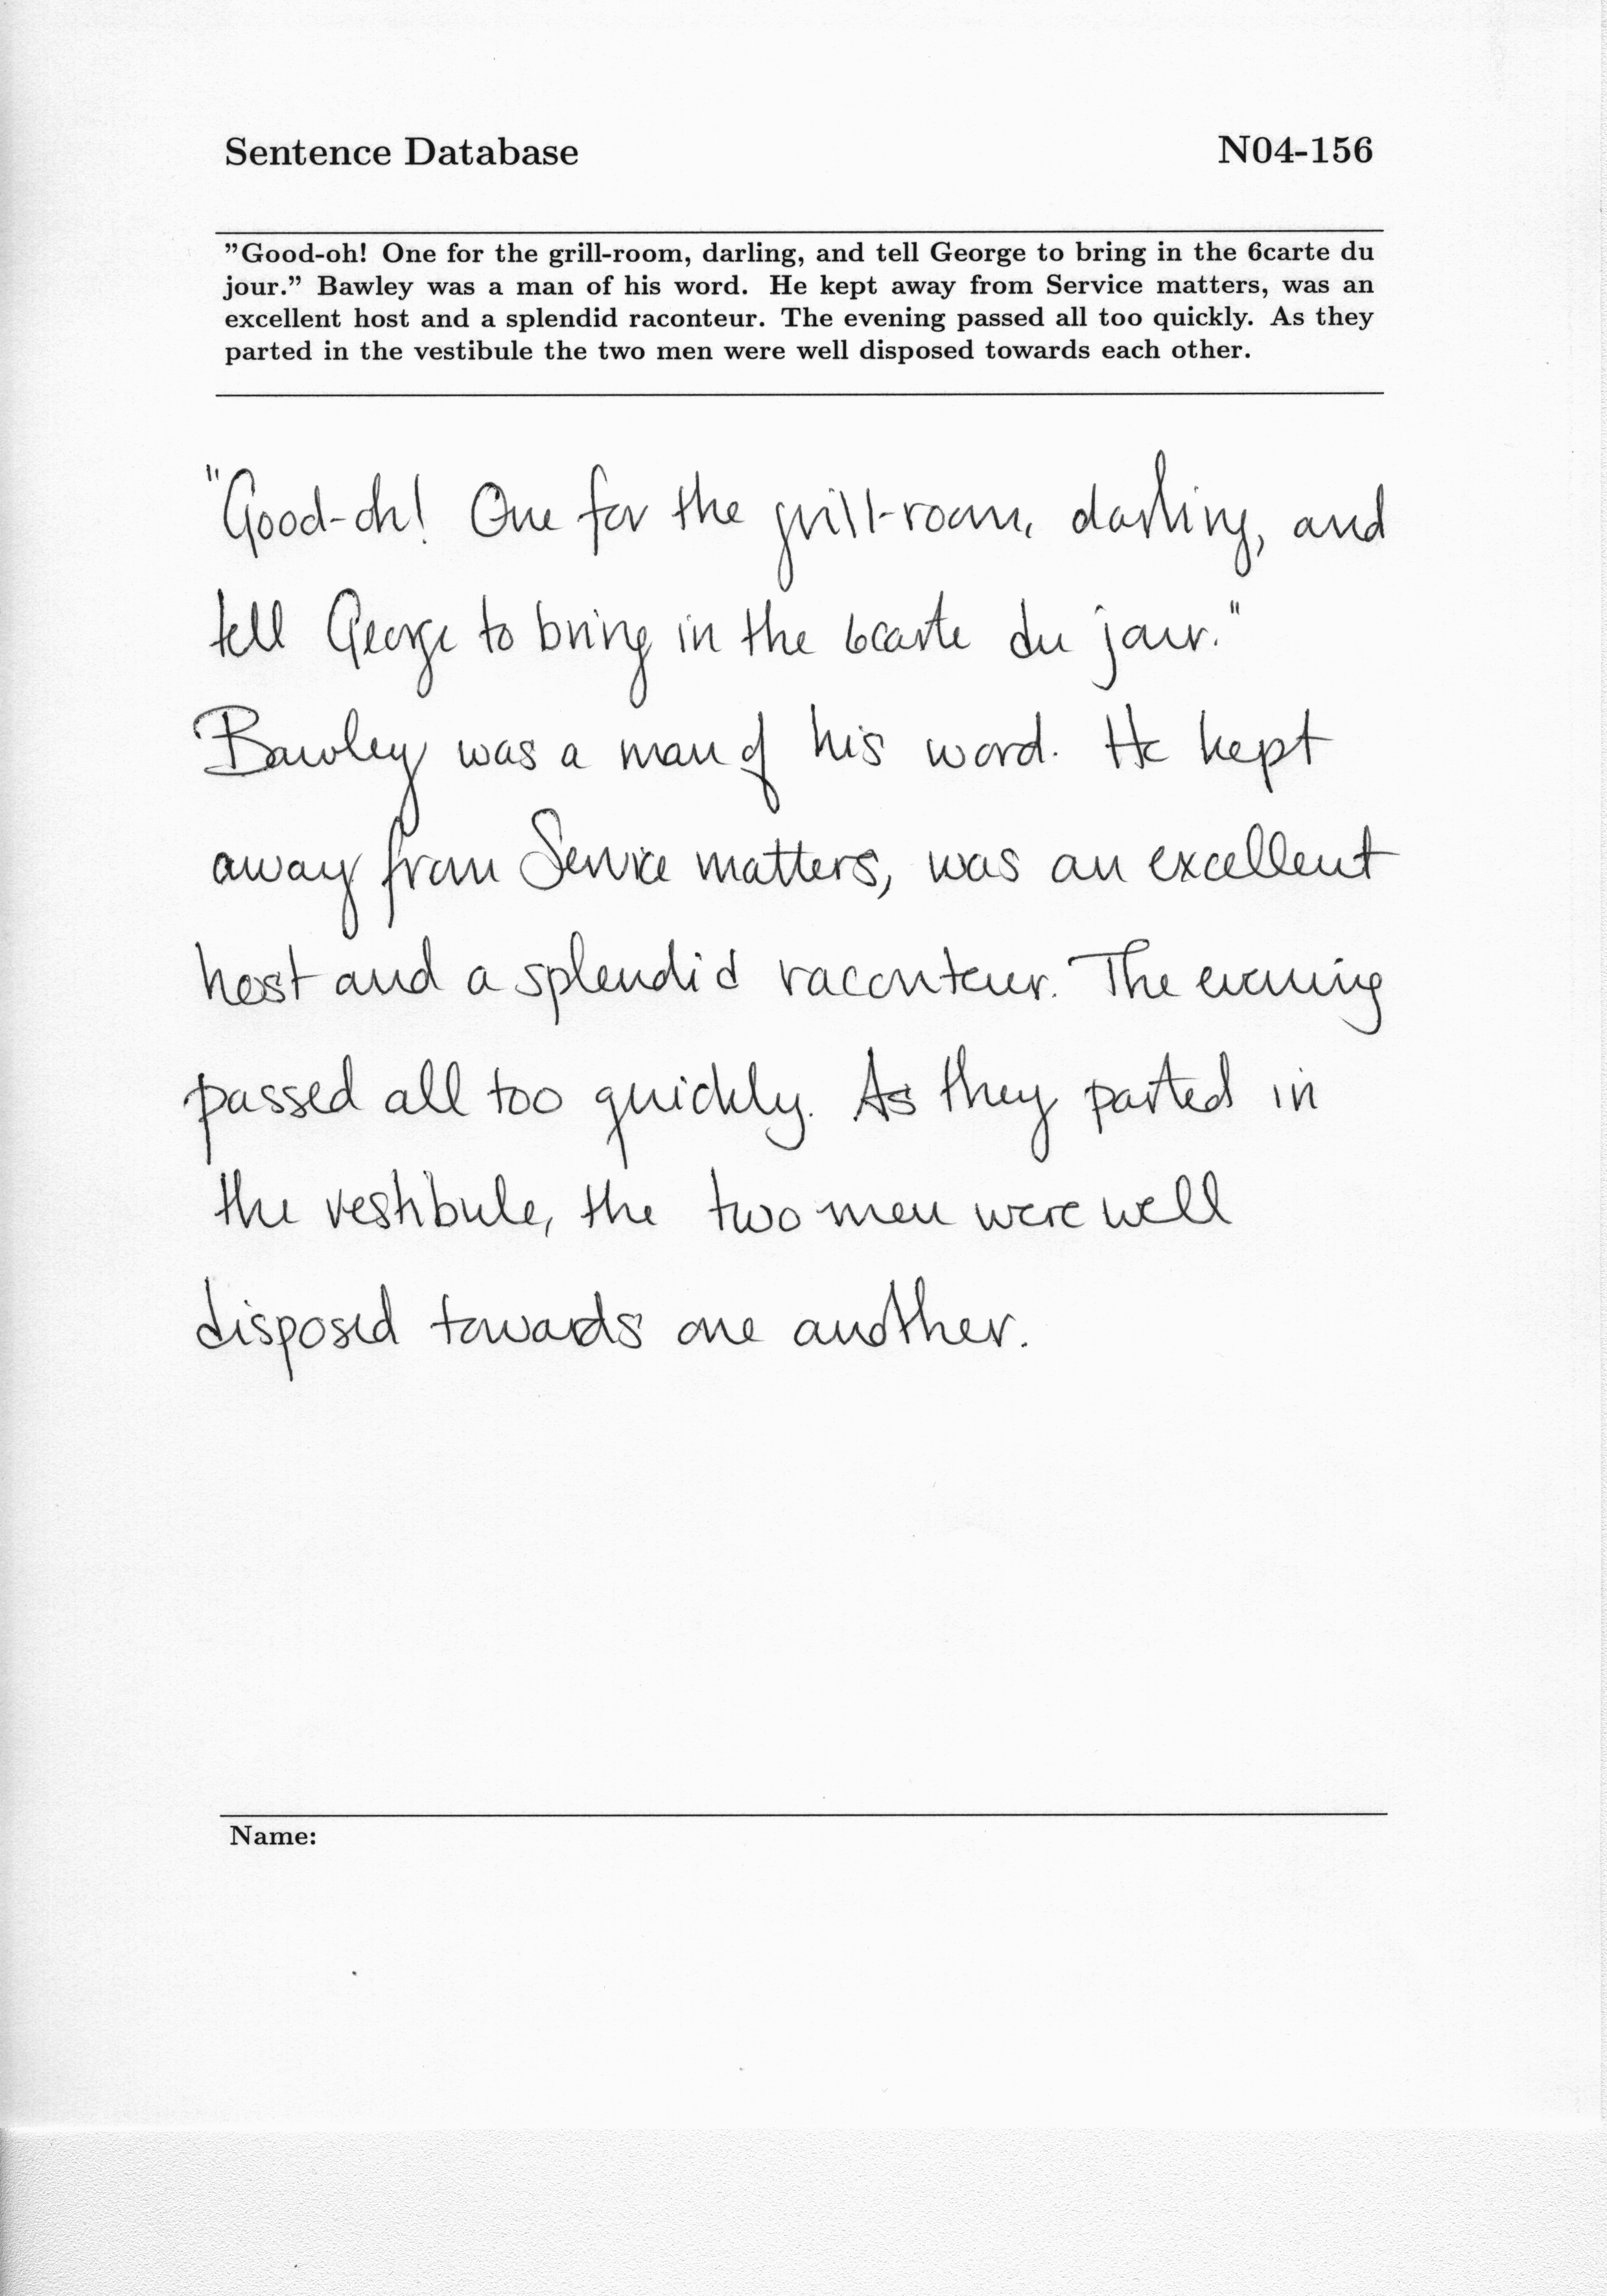 Sentence Database N04-156
"Good-oh! One for the grill-room, darling, and tell George to bring in the 6carte du
jour." Bawley was a man of his word. He kept away from Service matters, was an
excellent host and a splendid raconteur. The evening passed all too quickly. As they
parted in the vestibule the two men were well disposed towards each other.
"Good-oh! One for the grill-room, darling, and
tell George to bring in the 6carte du jour."
Bawley was a man of his word. He kept
away from Service matters, was an excellent
host and a splendid raconteur. The evening
passed all too quickly. As they parted in
the vestibule, the two men were well
disposed towards one another.
Name: